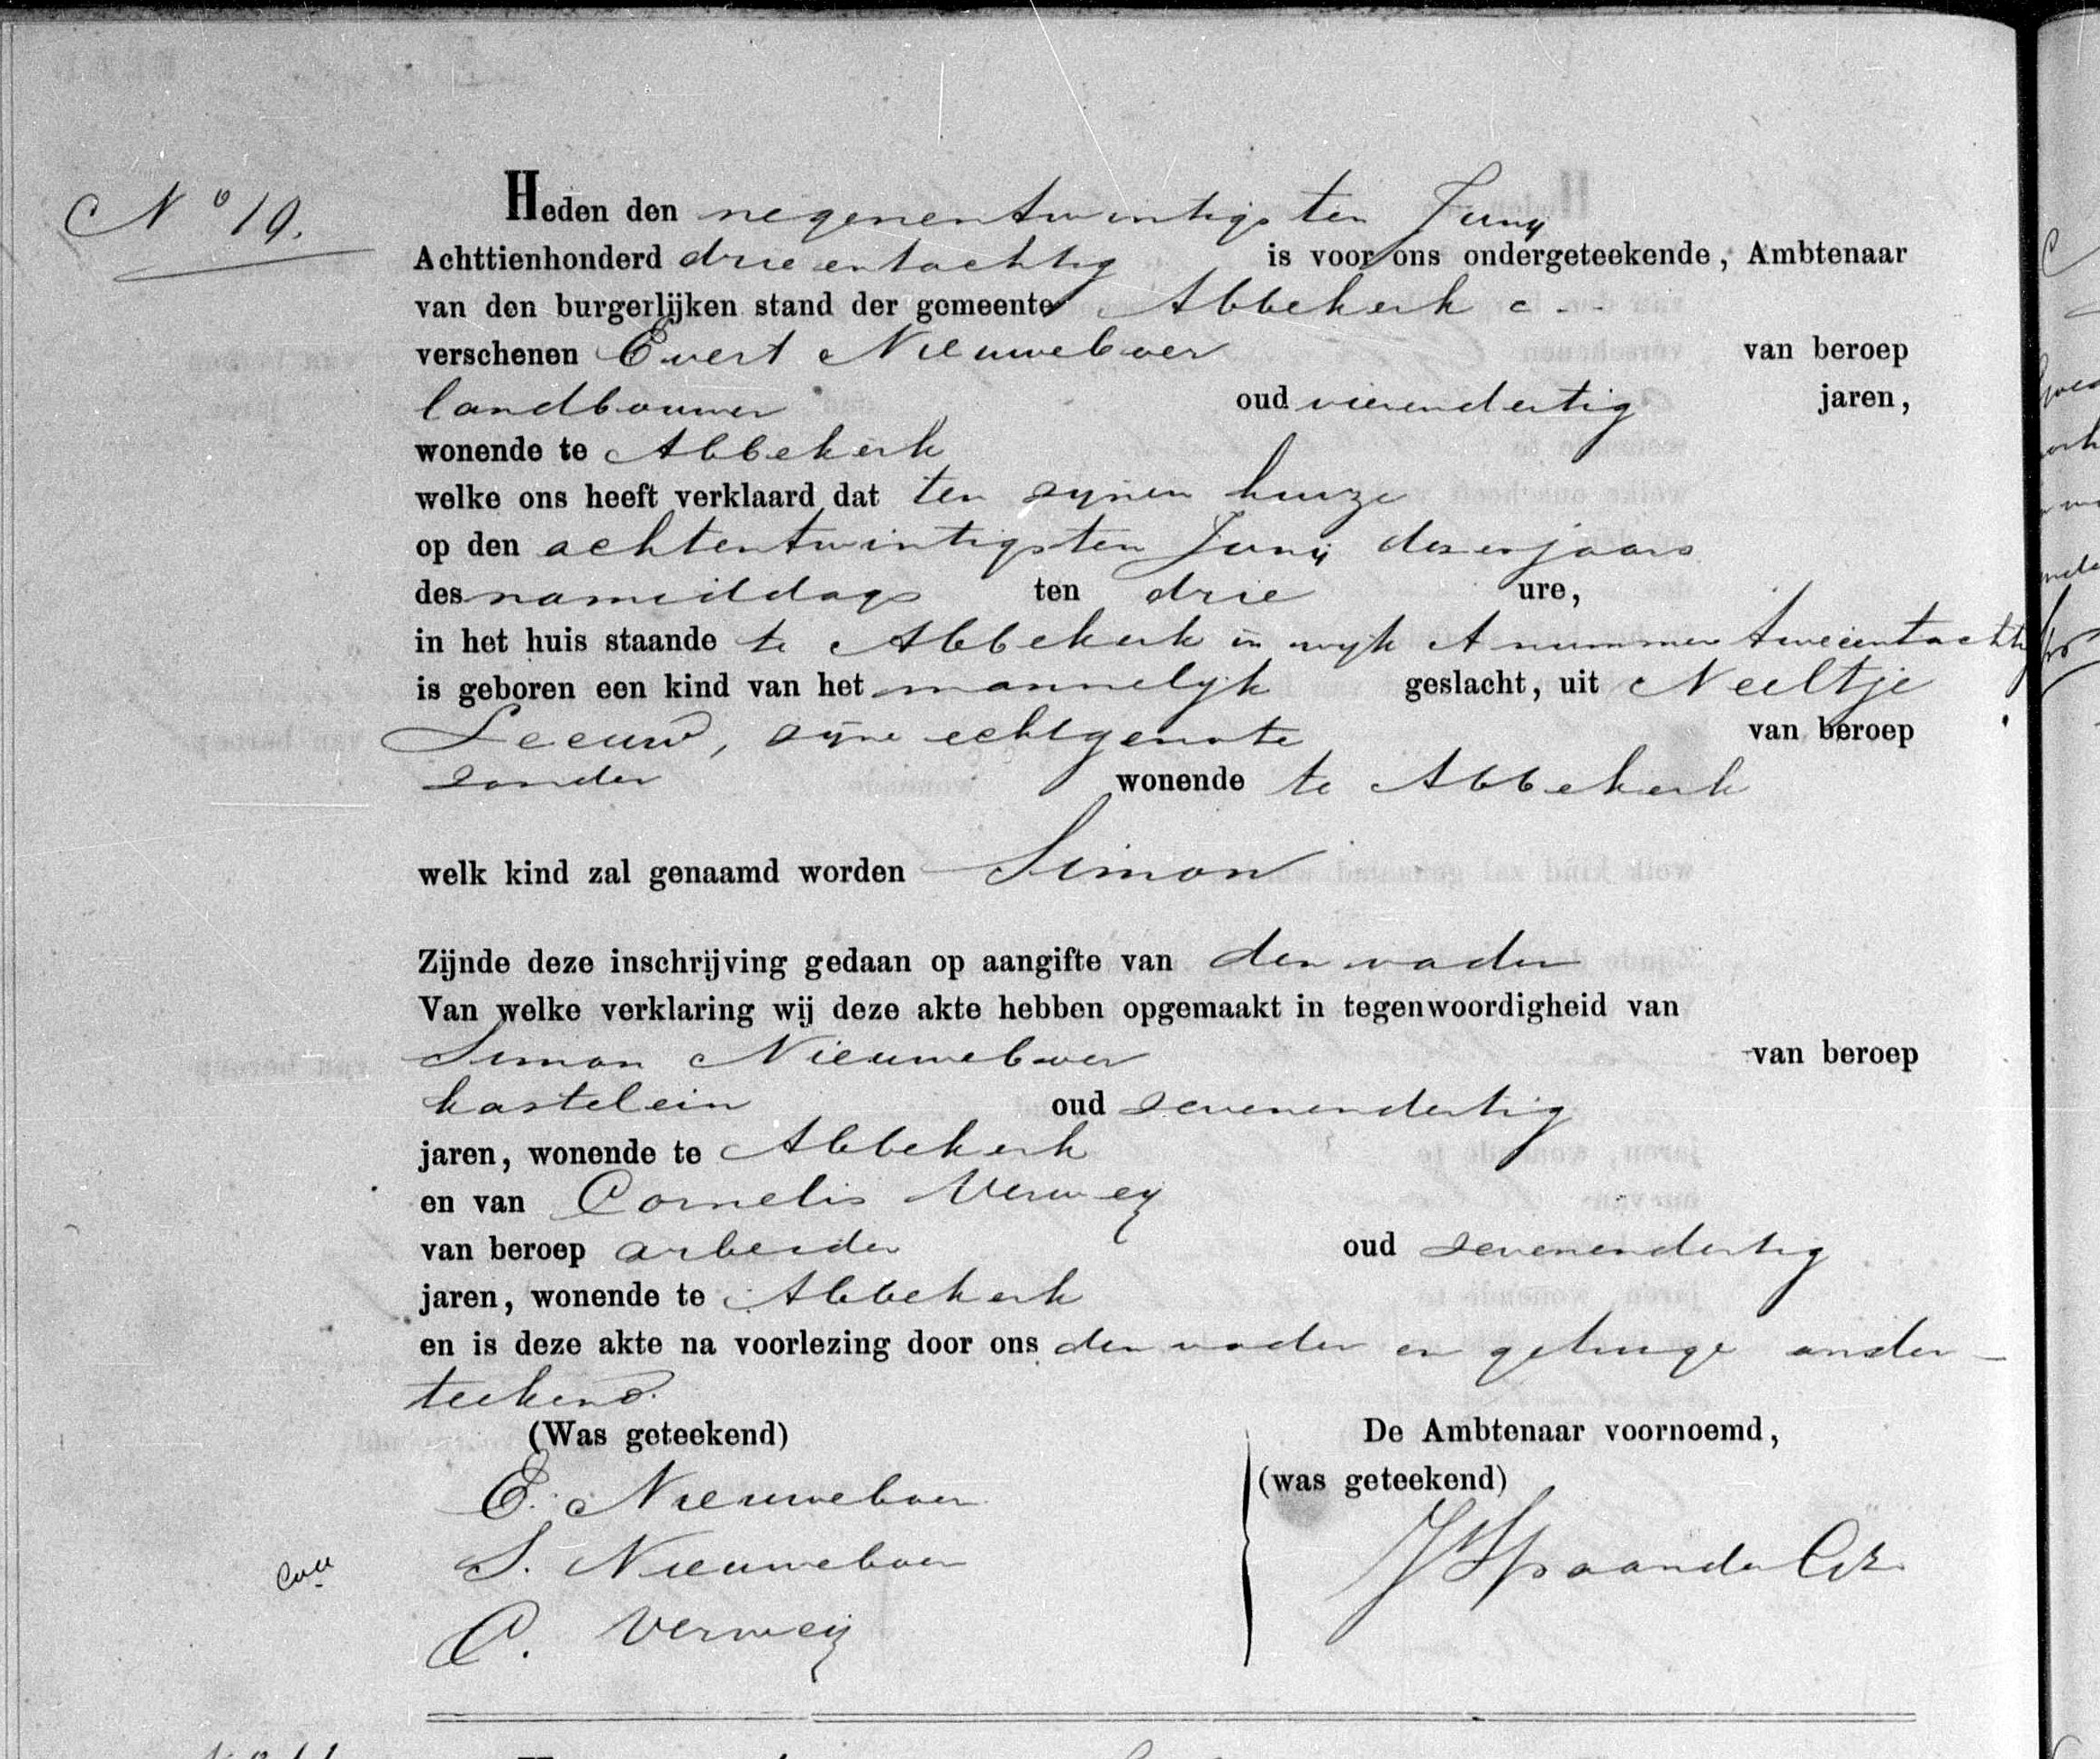 No 19.
Heden den negenentwintigsten Junij
Achttienhonderd drieentachtig is voor ons ondergeteekende, Ambtenaar
van den burgerlijken stand der gemeente Abbekerk
verschenen Evert Nieuweboer van beroep
landbouwer oud vierendertig jaren,
wonende te Abbekerk
welke ons heeft verklaard dat ten zijnen huize
op den achtentwintigsten Junij dezes jaars
des namiddags ten drie ure,
in het huis staande te Abbekerk in wijk A nummer tweeentachtig
is geboren een kind van het mannelijk geslacht, uit Neeltje
Leeuw, zijne echtgenote van beroep
zonder wonende te Abbekerk
welk kind zal genaamd worden Simon
Zijnde deze inschrijving gedaan op aangifte van den vader
Van welke verklaring wij deze akte hebben opgemaakt in tegenwoordigheid van
Simon Nieuweboer van beroep
kastelein oud zevenendertig
jaren, wonende te Abbekerk
en van Cornelis Verweij
van beroep arbeider oud zevenendertig
jaren, wonende te Abbekerk
en is deze akte na voorlezing door ons den vader en getuige onder-
teekend.
(Was geteekend) De Ambtenaar voornoemd,
(was geteekend)
E. Nieuweboer
S. Nieuweboer
C. Verweij